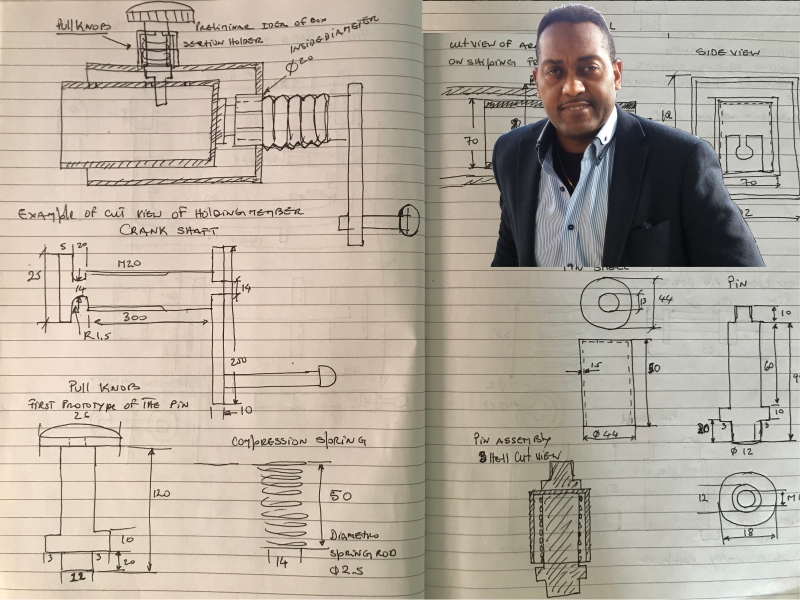 PULL KNOBS
PRELIMINAR IDEA OF BOX
SECTION HOLDER
INSIDE DIAMETER
Φ20
EXAMPLE OF CUT VIEW OF HOLDING MEMBER
CRANK SHAFT
5
20
M20
25
14
14
R1.5
300
250
10
PULL KNOBS
FIRST PROTOTYPE OF THE PIN
25
120
10
3
3
20
12
COMPRESSION SPRING
50
14
DIAMETRO
SPRING ROD
Φ2.5
CUT VIEW OF
ON SLIPING
L
SIDE VIEW
70
70
PIN SHELL
13
44
1.5
50
Φ44
PIN
10
60
10
20
3
3
Φ12
PIN ASSEMBLY
SHELL CUT VIEW
12
18